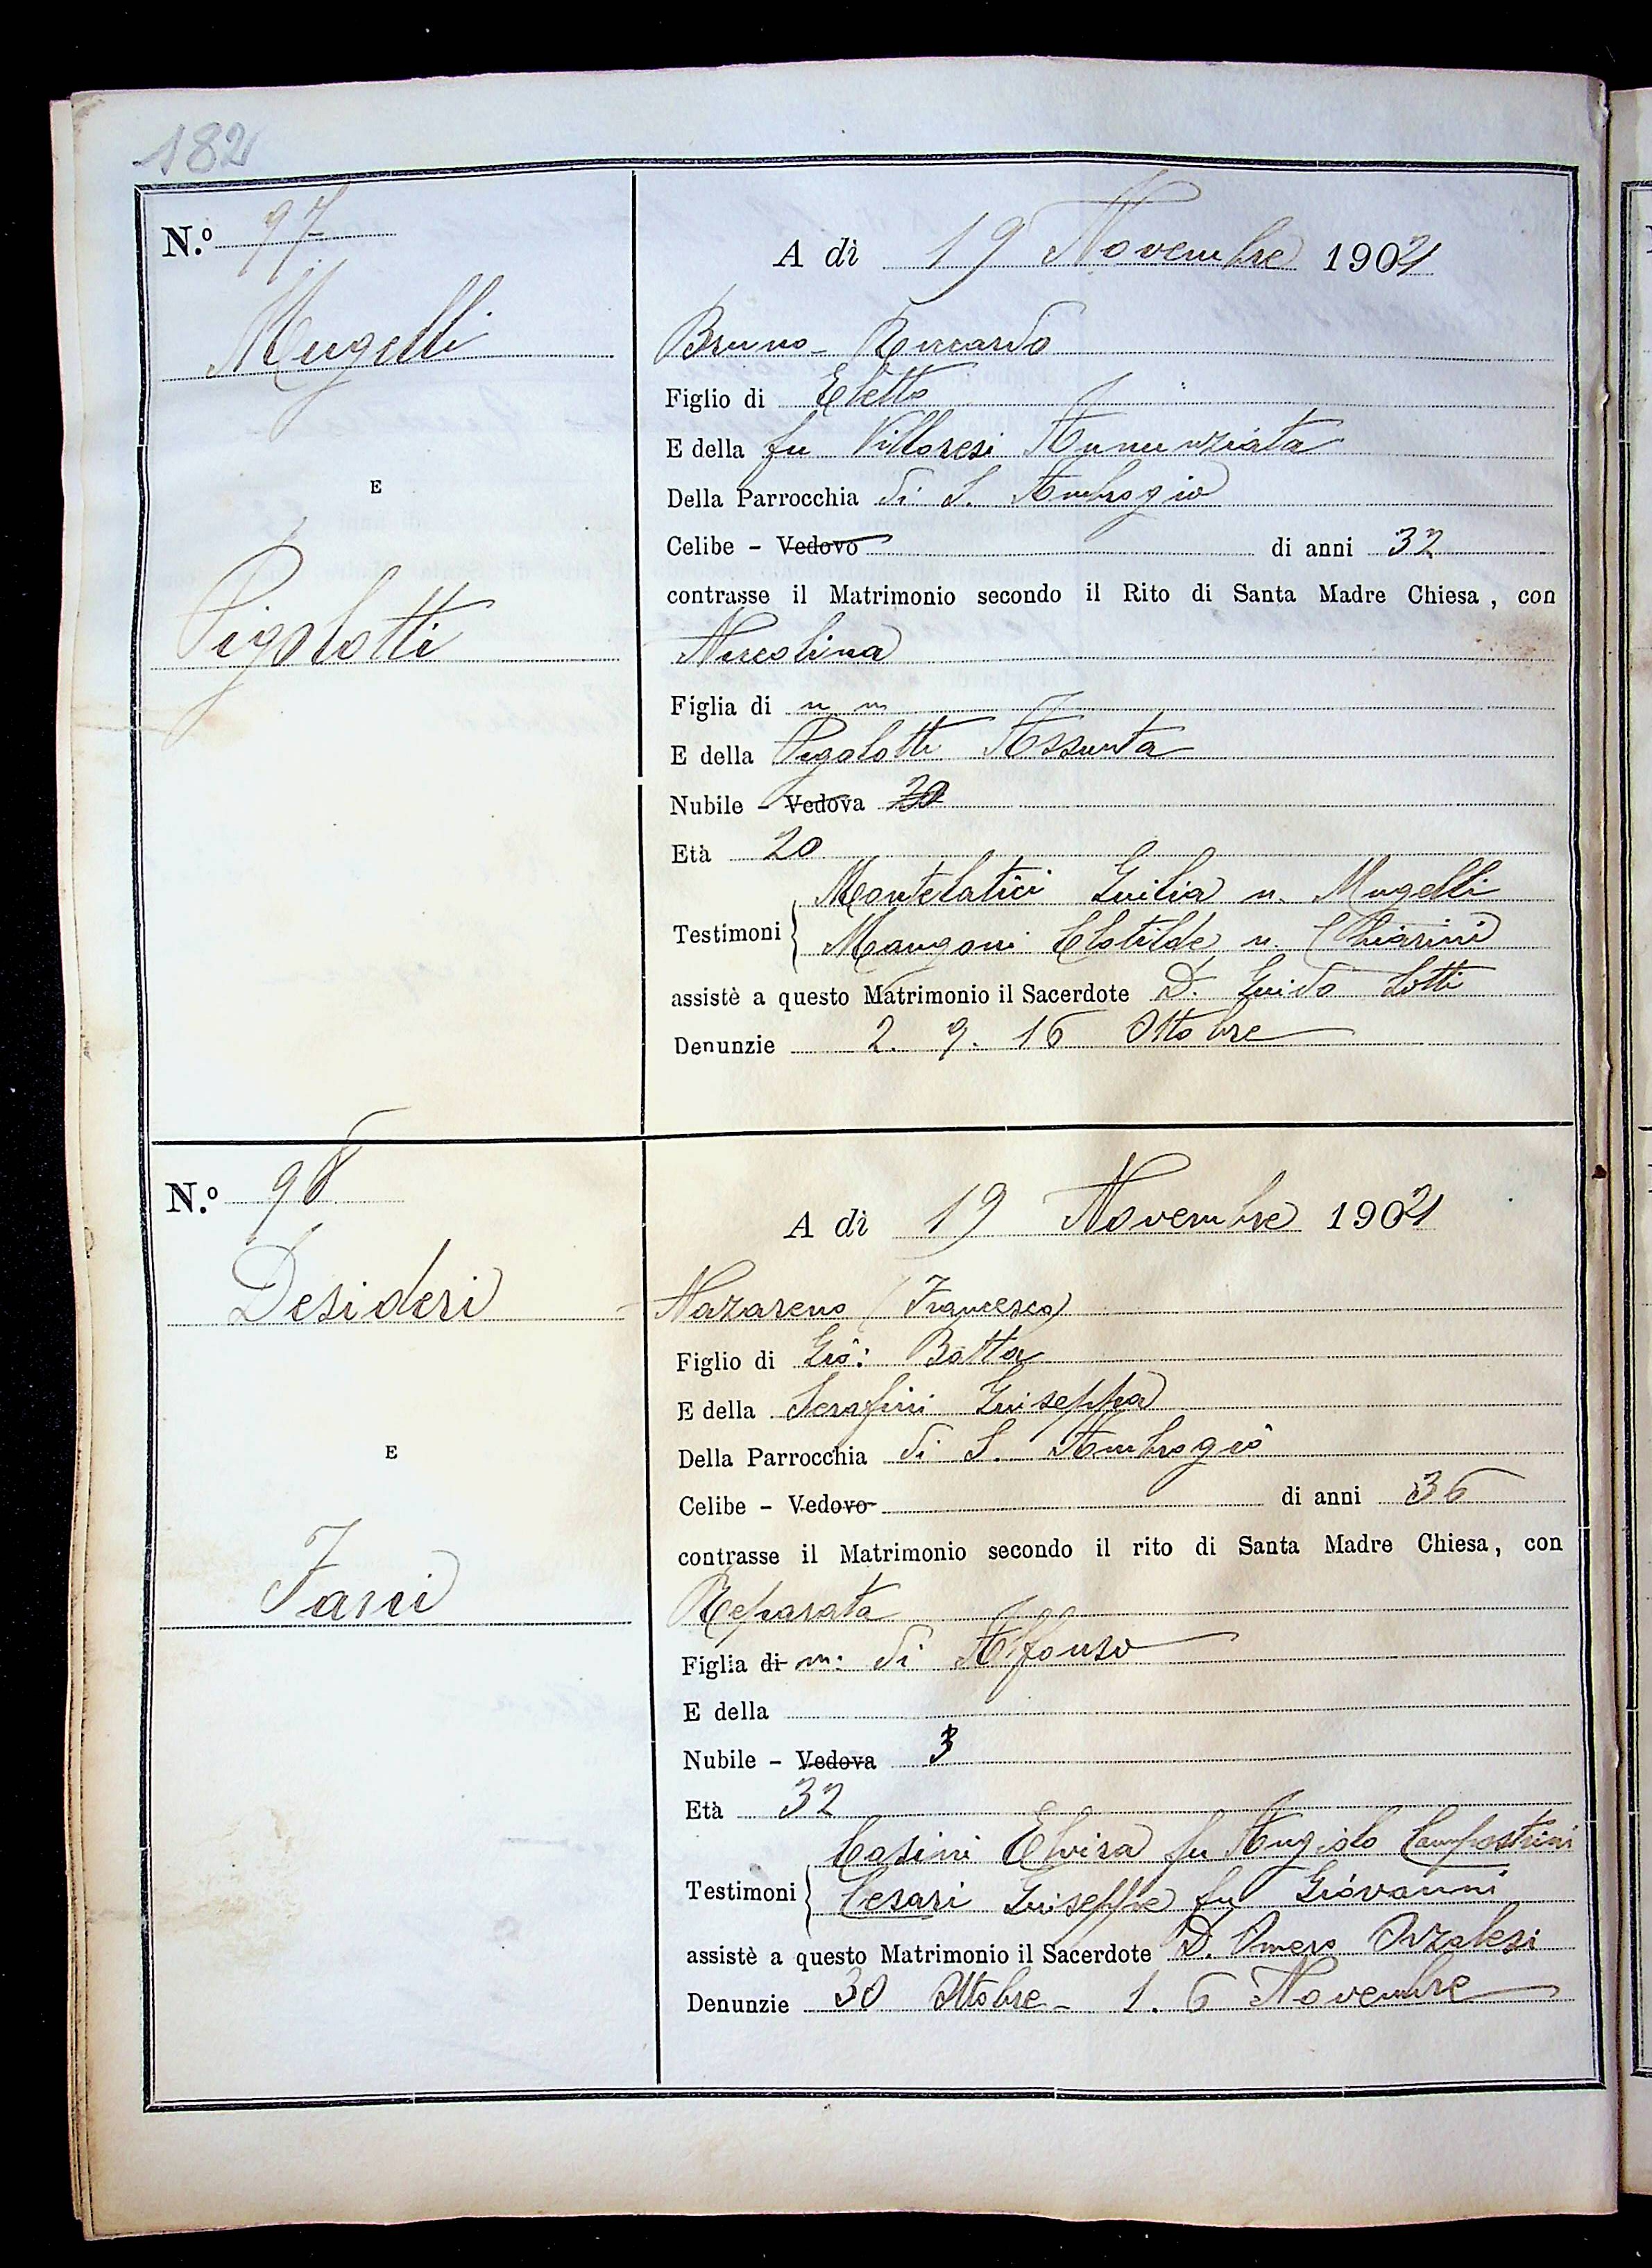 182
N.º 97
Mugelli
E
Pigolotti
A dì 19 Novembre 1904
Bruno - Riccardo
Figlio di Eletto
E della fu Villoresi Annunziata
Della Parrocchia di S. Ambrogio
Celibe - Vedovo di anni 32
contrasse il Matrimonio secondo il Rito di Santa Madre Chiesa, con
Nicolina
Figlia di n n
E della Pigolotti Assunta
Nubile - Vedova 20
Età 20
Testimoni { Montelatici Giulia n. Mugelli
Mangani Clotilde n. Chiarini
assistè a questo Matrimonio il Sacerdote D. Guido Lotti
Denunzie 2. 9. 16 Ottobre
N.º 98
Desideri
E
Farei
A dì 19 Novembre 1904
Nazareno (Francesco)
Figlio di Gio: Batta
E della Serafini Giuseppa
Della Parrocchia di S. Ambrogio
Celibe - Vedovo di anni 36
contrasse il Matrimonio secondo il rito di Santa Madre Chiesa, con
Reparata
Figlia di m: di Alfonso
E della
Nubile - Vedova 3
Età 32
Testimoni { Casini Elvira fu Angiolo Campostrini
Cesari Giuseppe fu Giovanni
assistè a questo Matrimonio il Sacerdote D. Omero Orzalesi
Denunzie 30 Ottobre - 1. 6 Novembre